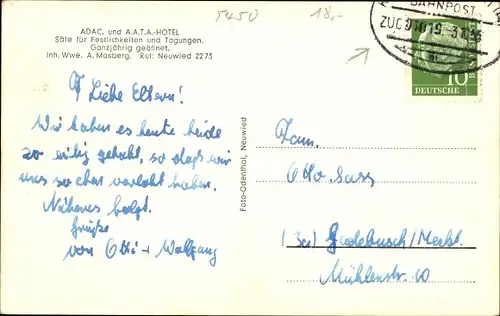 5450
18,-
ADAC. und A.A.T.A.-HOTEL
Säle für Festlichkeiten und Tagungen.
Ganzjährig geöffnet.
Inh. Wwe. A. Masberg. Ruf: Neuwied 2273
BAHNPOST
ZUG
10
DEUTSCHE
Liebe Eltern!
Wir haben es heute beide
so eilig gehabt, so daß wir
uns so eben verlobt haben.
Näheres folgt.
Grüße
von Otti + Wolfgang
Foto-Odenthal, Neuwied
Fam.
Otto Sass
Gadebusch/Meckl.
Mühlenstr. 10